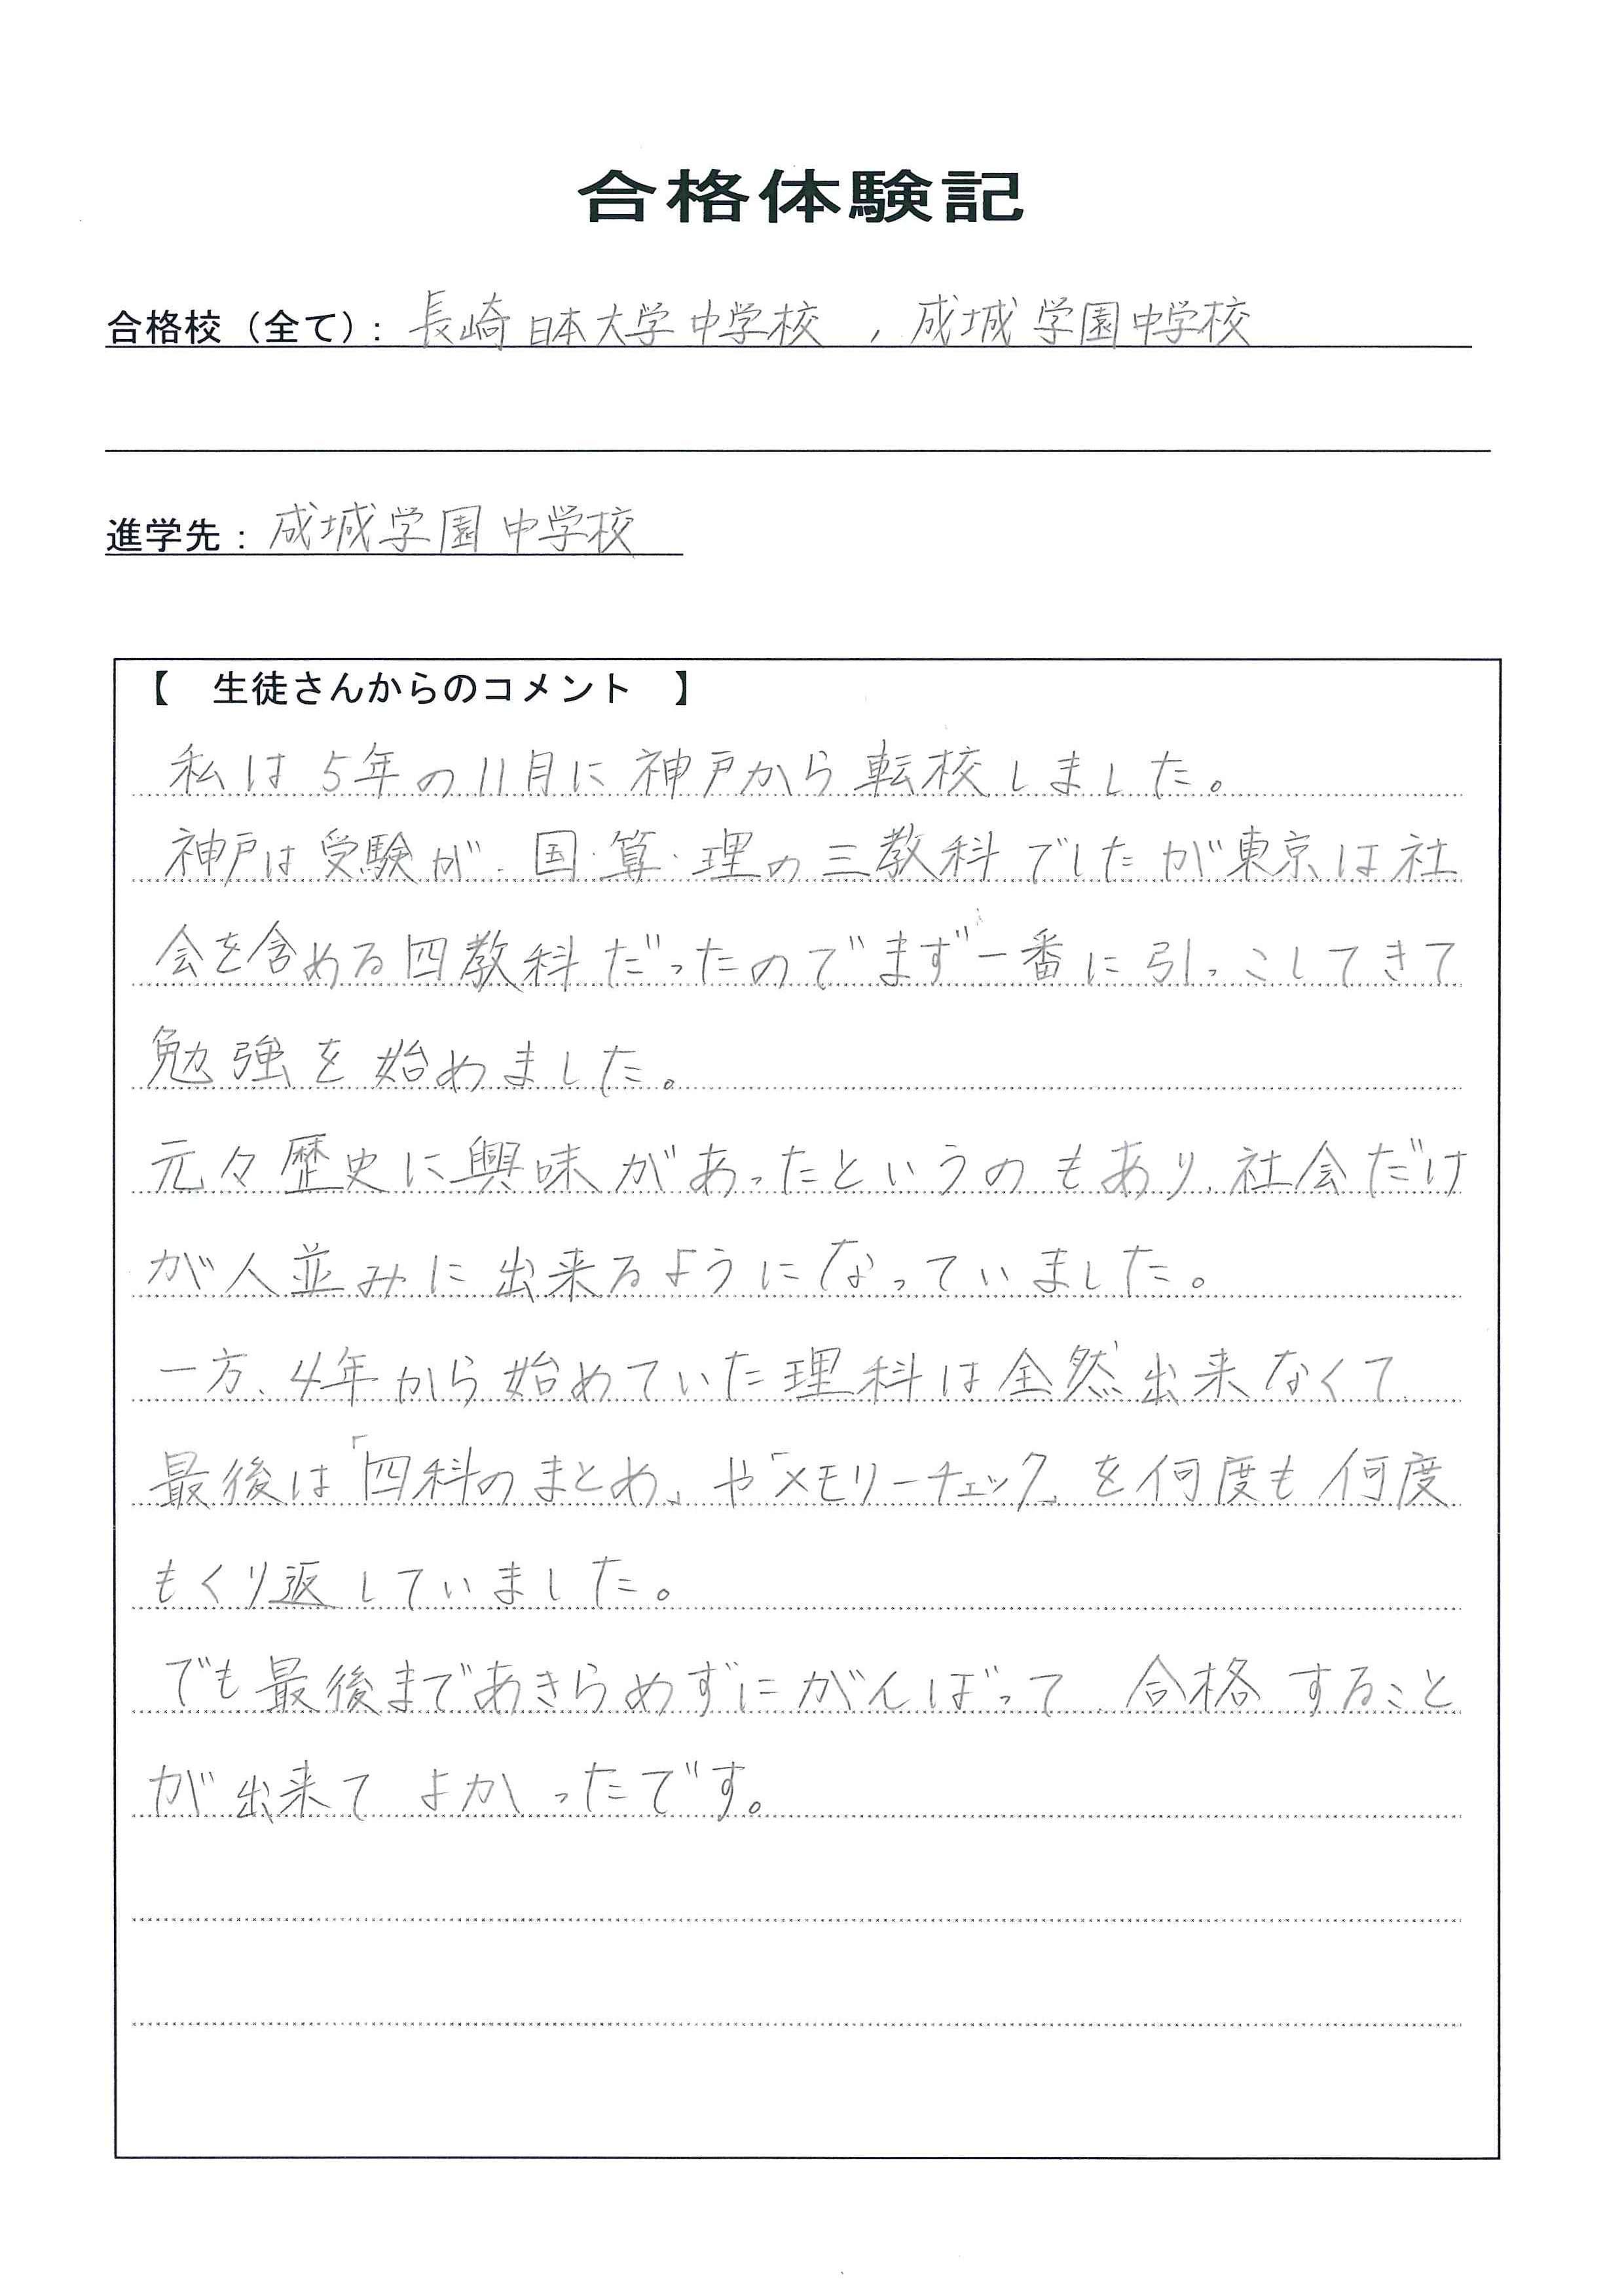 合格体験記
合格校（全て）: 長崎日本大学中学校 , 成城学園中学校
進学先 : 成城学園中学校
【　生徒さんからのコメント　】
私は5年の11月に神戸から転校しました。
神戸は受験が、国・算・理の三教科でしたが東京は社
会を含める四教科だったのでまず一番に引っこしてきて
勉強を始めました。
元々歴史に興味があったというのもあり、社会だけ
が人並みに出来るようになっていました。
一方、4年から始めていた理科は全然出来なくて、
最後は「四科のまとめ」や「メモリーチェック」を何度も何度
もくり返していました。
でも最後まであきらめずにがんばって、合格すること
が出来てよかったです。